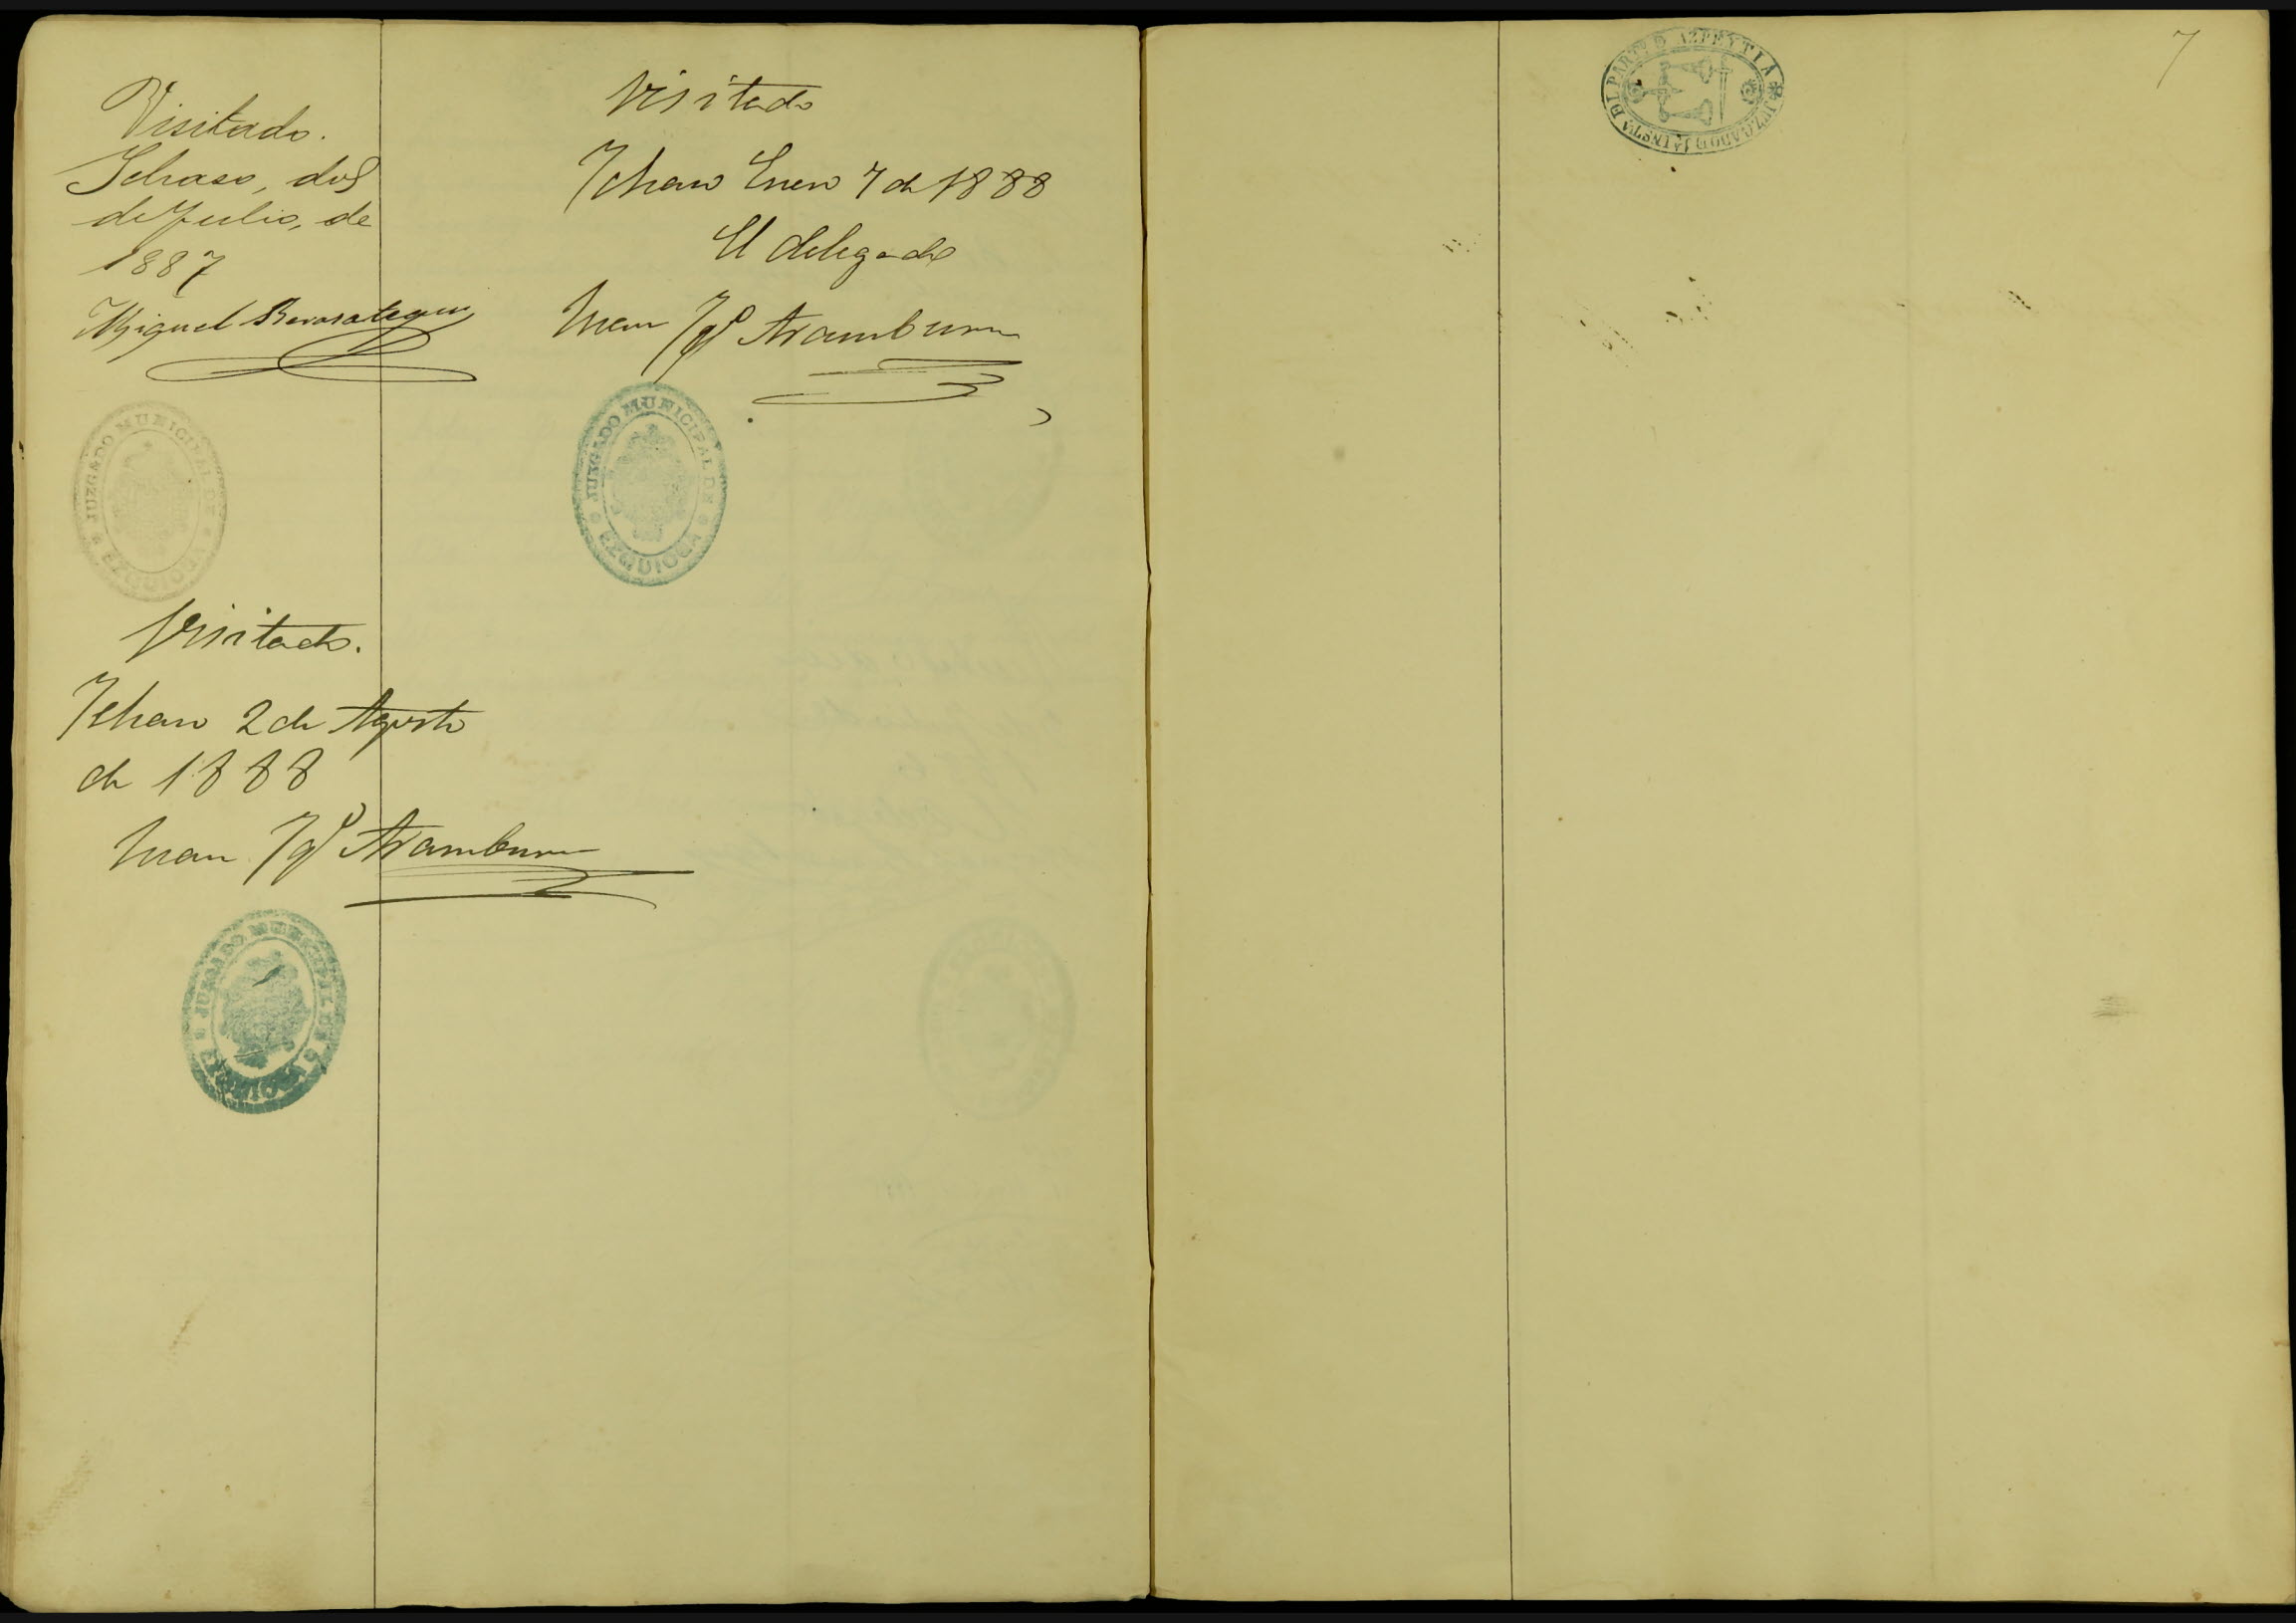 Visitado.
Ichaso, dos
de Julio, de
1887
Miguel Berasategui
JUZGADO MUNICIPAL DE
EZQUIOGA
Visitado.
Ichaso 2 de Agosto
de 1888
Juan Jgº Aramburu
JUZGADO MUNICIPAL DE
EZQUIOGA
Visitado
Ichaso Enero 7 de 1888
El delegado
Juan Jgº Aramburu
JUZGADO MUNICIPAL DE
EZQUIOGA
JUZGADO D 1ª INSTA DEL PARTO D AZPEYTIA
7